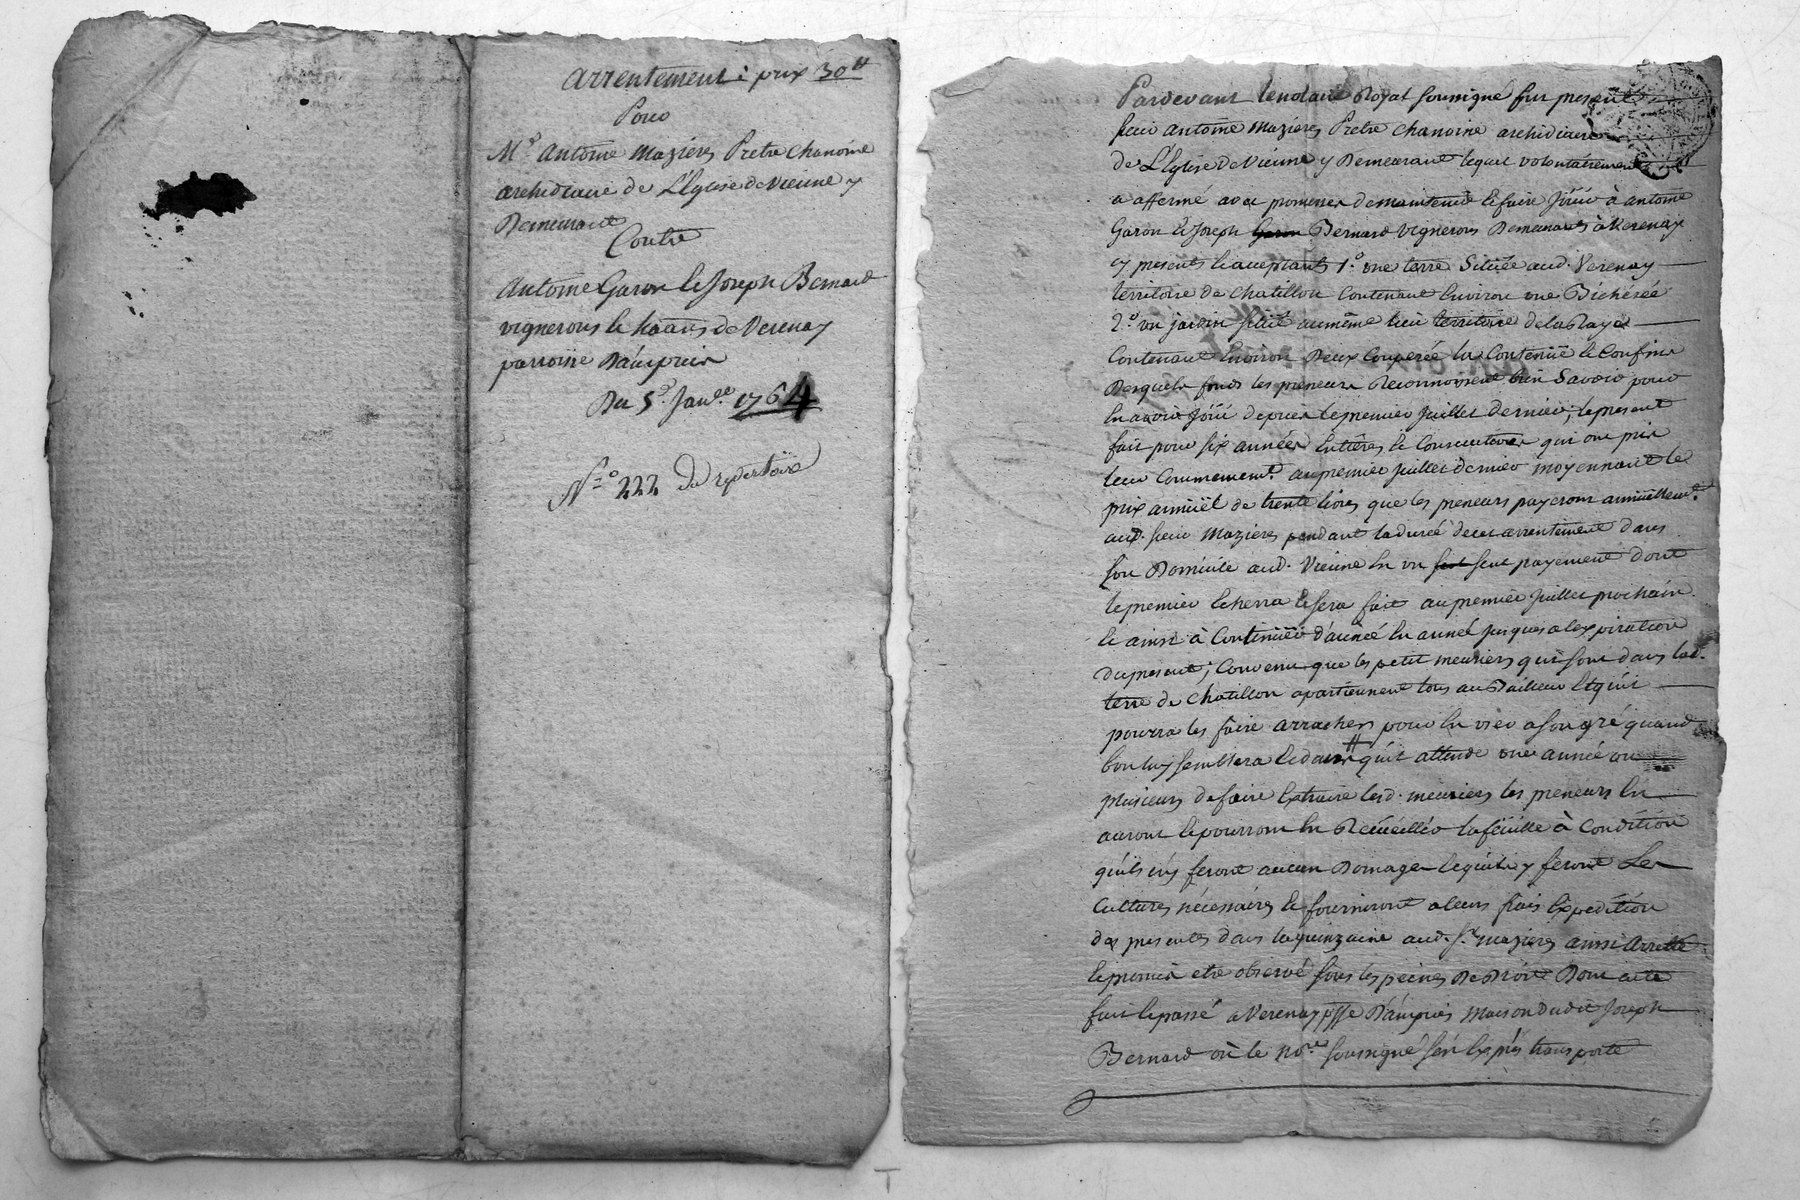 arrentement : prix 30ᵗᵗ
Pour
Mᵉ Antoine Mazieres Pretre chanoine
archidiacre de L'Eglise de Vienne y
Demeurant
Contre
Antoine Garon & Joseph Bernard
vignerons habitans de Verenay
parroisse D'ampuis
Du 5ᵉ. Janᵉʳ. 1764
N°. 222 du repertoire
Pardevant le notaire Royal soussigné fut present
sieur antoine Mazieres Pretre chanoine archidiacre
de L'Eglise de Vienne y Demeurant lequel volontairement
a affermé avec promesse de maintenir & faire Jöüir à antoine
Garon & Joseph Garon Bernard vignerons Demeurants à Verenay
cy presents & acceptants 1°. une terre Située aud. Verenay
territoire de chatillon contenant Environ une Bicherée
2°. un jardin scitüé au même lieu territoire de la Playe
Contenant Environ Deux Couperée la Contenüe & Confins
Desquels fonds les preneurs Reconnoissent bien Savoir pour
En avoir Jöüi depuis le premier juillet dernier; le present
fait pour six années Entieres & Consecutives qui ont pris
leur Commencemᵗ. au premier juillet dernier moyennant le
prix annüel de trente livres que les preneurs payeront annüellemᵗ.
aud. sieur Mazieres pendant la durée de cet arrentement dans
son Domicile aud. Vienne En un seul seul payement dont
le premier Echerra & sera fait au premier juillet prochain
& ainsi à Continüer d'année En année jusques a l'expiration
du present; Convenu que les petit meuriers qui sont dans lad.
terre de chatillon apartiennent tous au Bailleur & qu'il
pourra les faire arracher pour En user a son gré quand
bon luy semblera & dans qu'il attende une année ou
plusieurs de faire Extraire lesd. meuriers les preneurs En
auront & pourront En Recüeillir la feüille à Condition
qu'ils n'y feront aucun Domage & qu'ils y feront Les
Cultures nécessaires & fourniront a leurs frais Expedition
des presentes dans la quinzaine aud. Sʳ. mazieres ainsi Arretté
& promis etre observé sous les peines De Droit Dont acte
fait & passé a Verenay pſſe D'ampuis Maison dudit Joseph
Bernard où le noʳᵉ soussigné s'est Exprès transporté